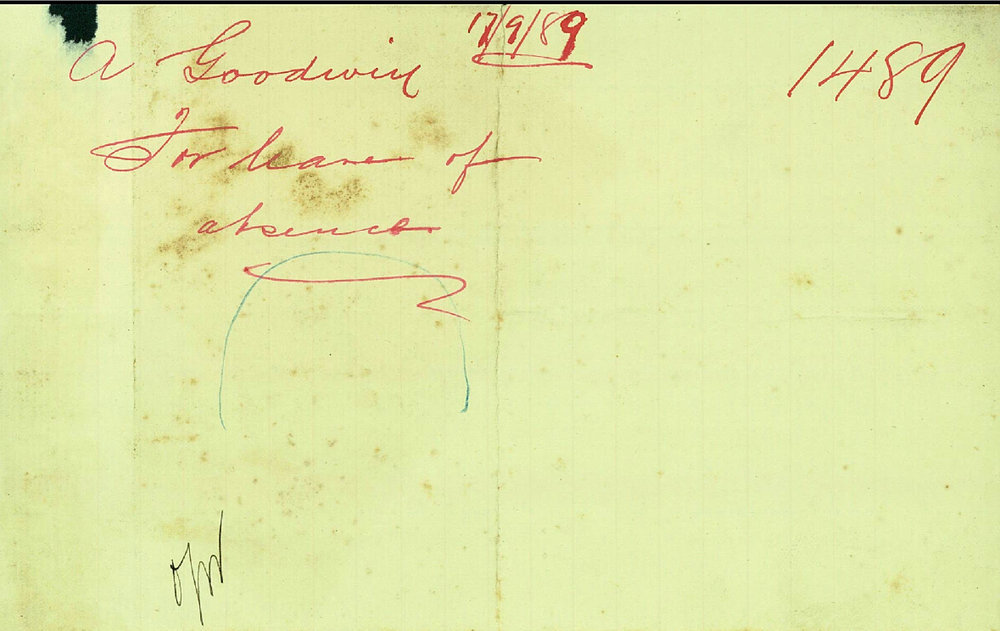 17/9/89
A Goodwin
1489
For leave of
absence